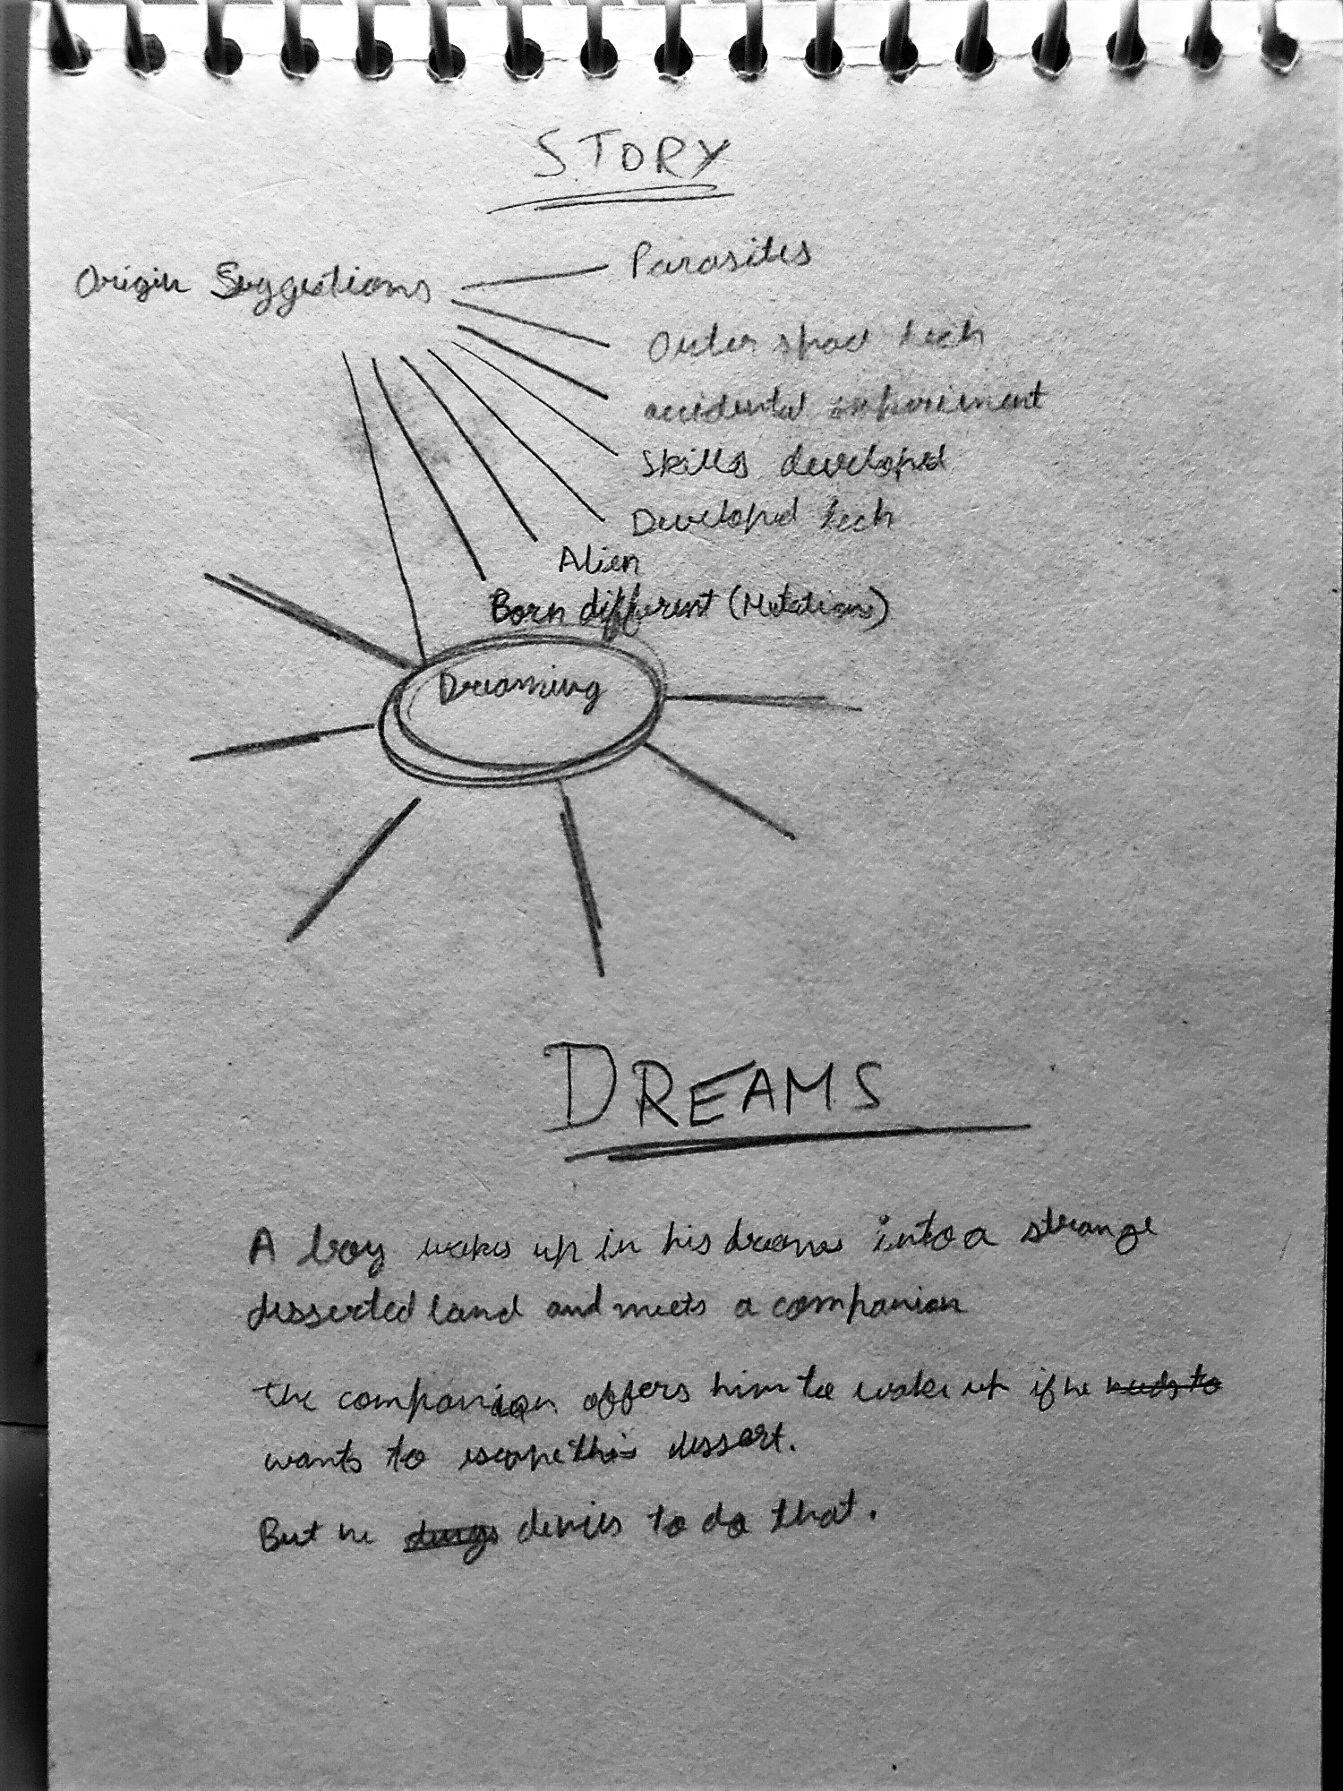 STORY
Origin Suggestions
Parasites
Outer space tech
accidental experiment
Skills developed
Developed tech
Alien
Born different (Mutations)
Dreaming
DREAMS
A boy wakes up in his dreams into a strange
desserted land and meets a companion
the companion offers him to wake up if he needs to
wants to escape this dessert.
But he denies to do that.